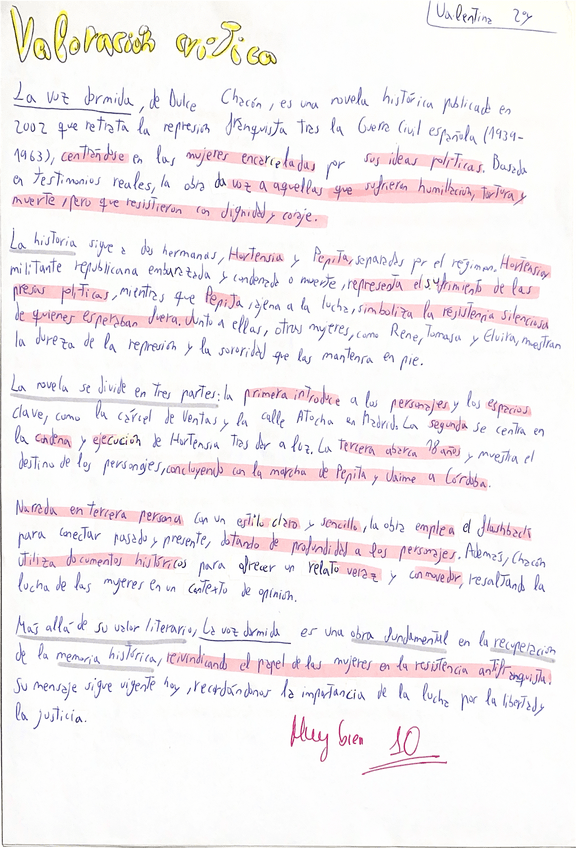 Valentina 2ºy
Valoración crítica
La voz dormida, de Dulce Chacón, es una novela histórica publicada en
2002 que retrata la represión franquista tras la Guerra Civil española (1939-
1963), centrándose en las mujeres encarceladas por sus ideas políticas. Basada
en testimonios reales, la obra da voz a aquellas que sufrieron humillación, tortura y
muerte, pero que resistieron con dignidad y coraje.
La historia sigue a dos hermanas, Hortensia y Pepita, separadas por el régimen. Hortensia,
militante republicana embarazada y condenada a muerte, representa el sufrimiento de las
presas políticas, mientras que Pepita, ajena a la lucha, simboliza la resistencia silenciosa
de quienes esperaban fuera. Junto a ellas, otras mujeres, como Rene, Tomasa y Elvira, muestran
la dureza de la represión y la sororidad que las mantenía en pie.
La novela se divide en tres partes: la primera introduce a los personajes y los espacios
clave, como la cárcel de Ventas y la calle Atocha en Madrid. La segunda se centra en
la condena y ejecución de Hortensia tras dar a luz. La tercera abarca 18 años y muestra el
destino de los personajes, concluyendo con la marcha de Pepita y Jaime a Córdoba.
Narrada en tercera persona con un estilo claro y sencillo, la obra emplea el flashback
para conectar pasado y presente, dotando de profundidad a los personajes. Además, Chacón
utiliza documentos históricos para ofrecer un relato veraz y conmovedor, resaltando la
lucha de las mujeres en un contexto de opinión.
Más allá de su valor literario, La voz dormida es una obra fundamental en la recuperación
de la memoria histórica, reivindicando el papel de las mujeres en la resistencia antifranquista.
Su mensaje sigue vigente hoy, recordándonos la importancia de la lucha por la libertad y
la justicia.
Muy bien 10